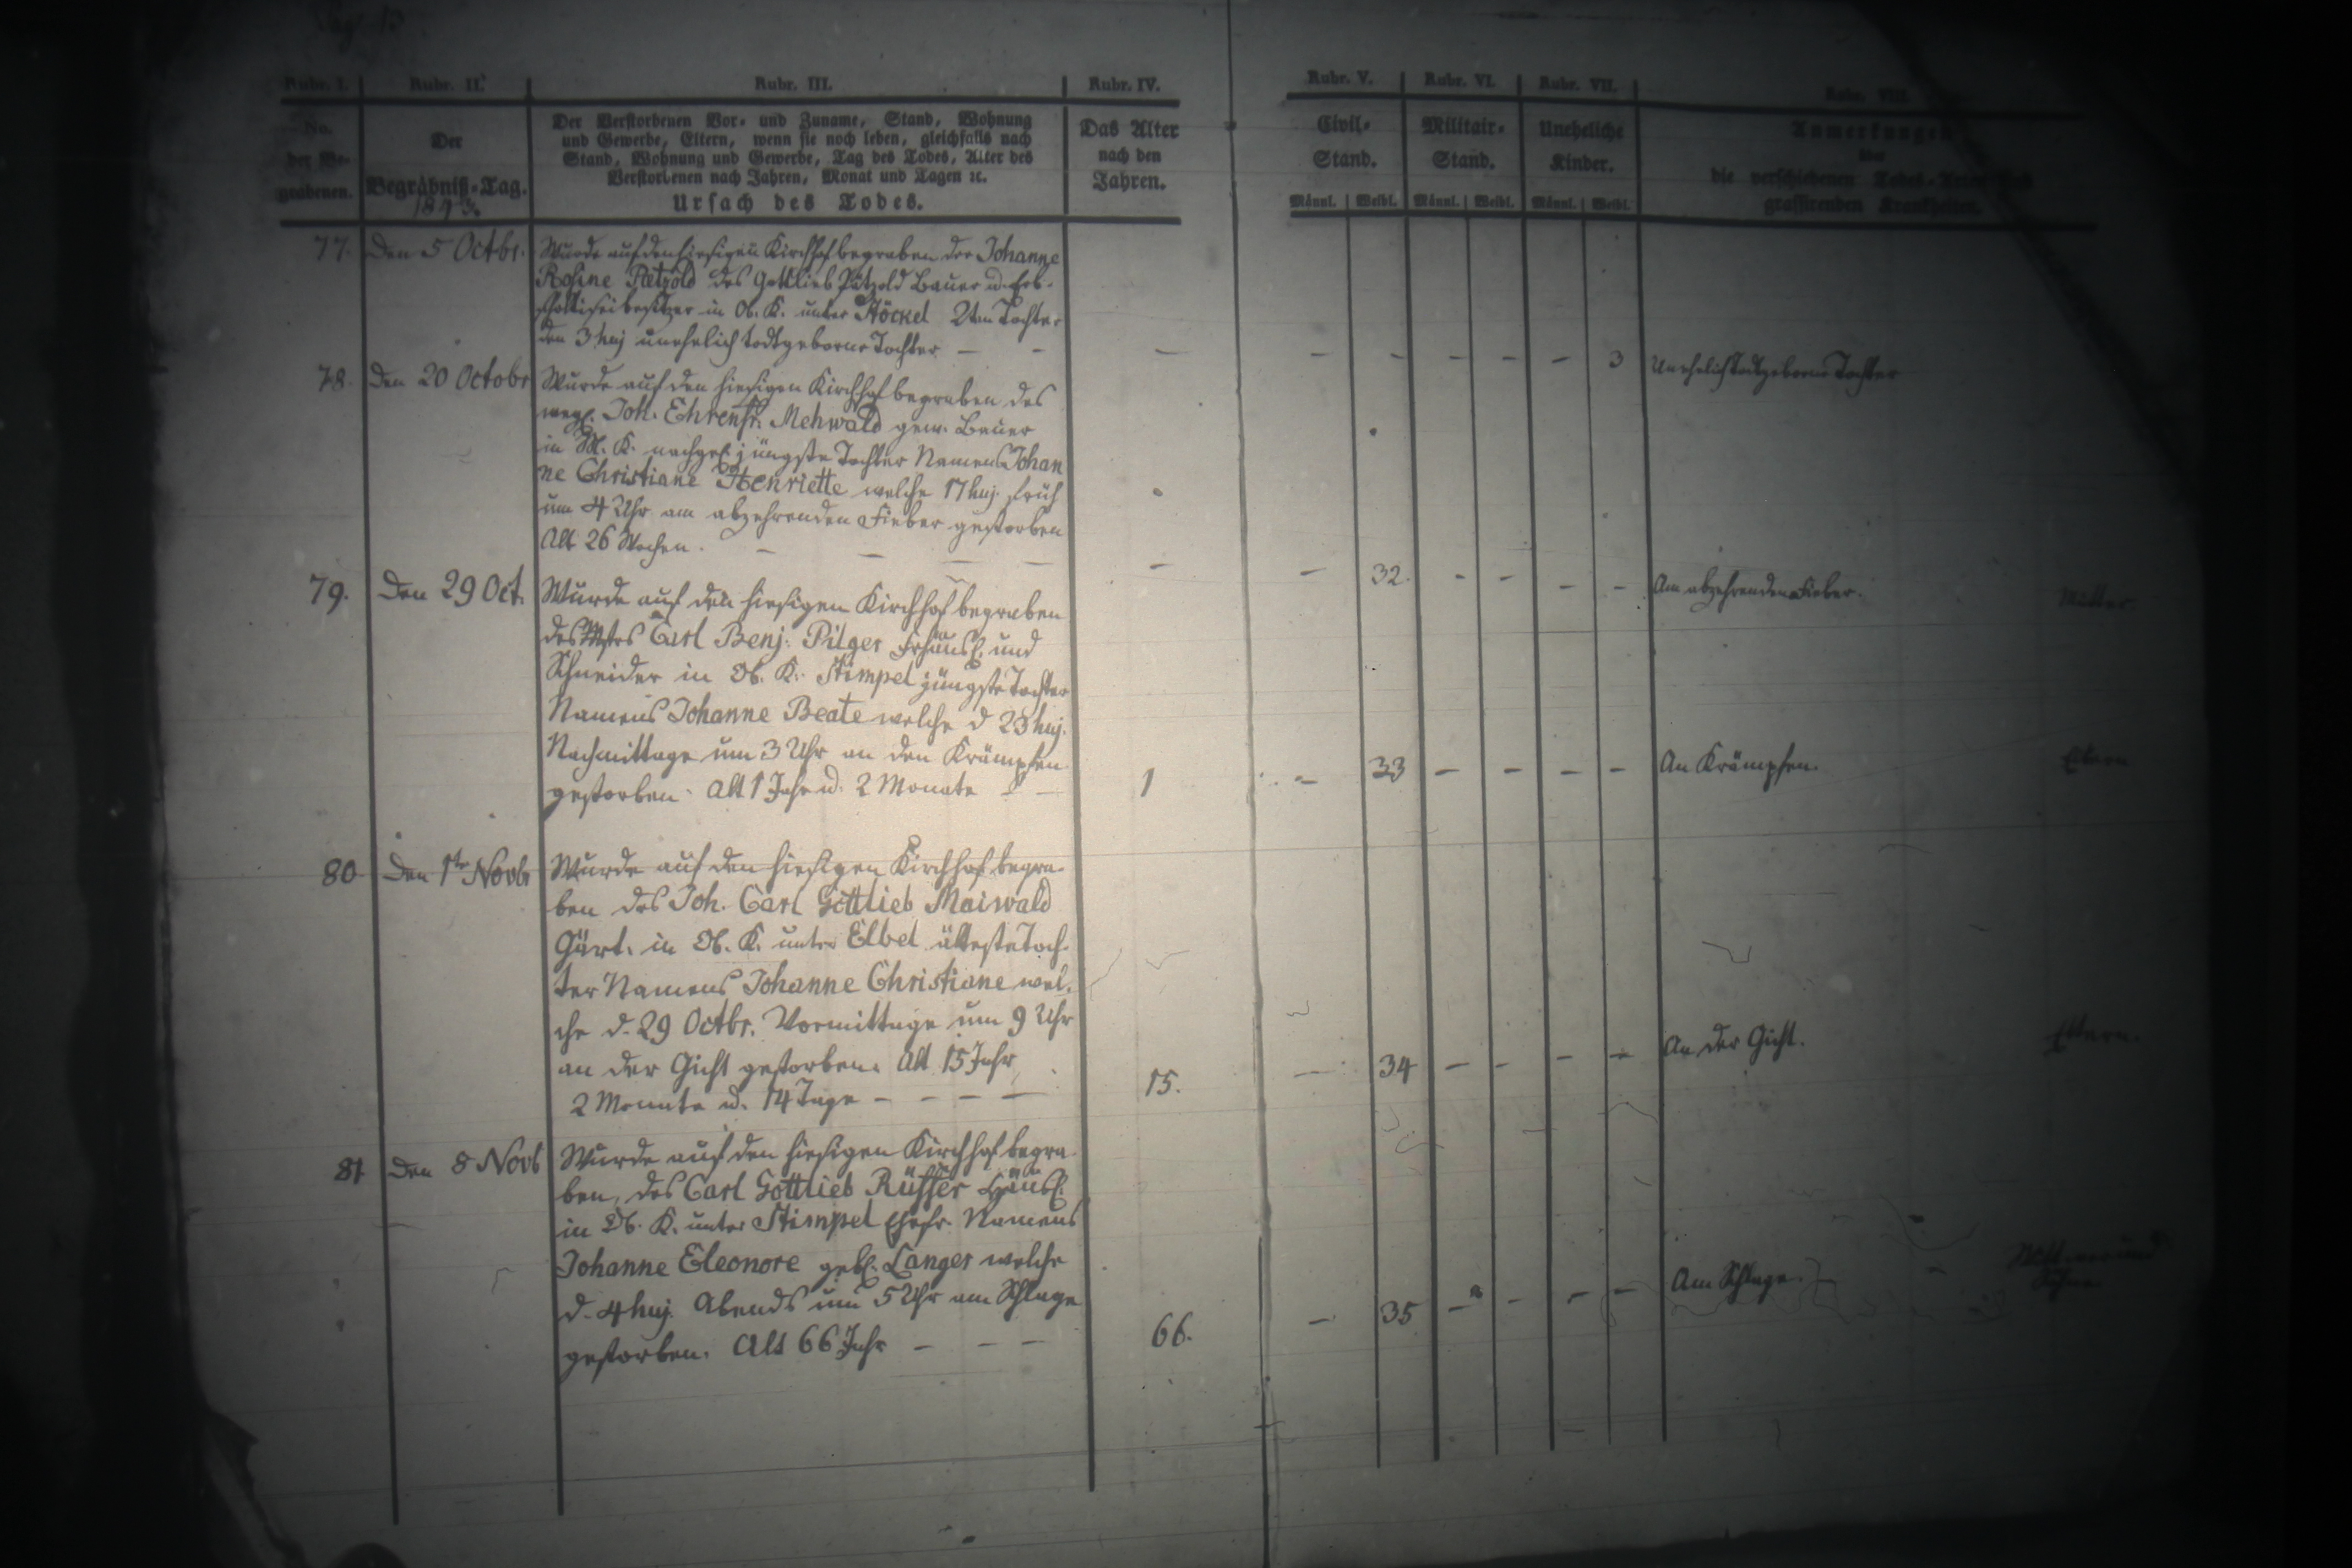 Rubr. I. Rubr. II. Rubr. III. Rubr. IV. Rubr. V. Rubr. VI. Rubr. VII. Rubr. VIII.
No. der Be-grabenen.
Der Begräbniß-Tag.
Der Verstorbenen Vor- und Zuname, Stand, Wohnung
und Gewerbe, Eltern, wenn sie noch leben, gleichfalls nach
Stand, Wohnung und Gewerbe, Tag des Todes, Alter des
Verstorbenen nach Jahren, Monat und Tagen ꝛc.
Ursach des Todes.
Das Alter
nach den
Jahren.
Civil-
Stand.
Männl. Weibl.
Militair-
Stand.
Männl. Weibl.
Uneheliche
Kinder.
Männl. Weibl.
Anmerkungen
über
die verschiedenen Todes-Arten
grassirenden Krankheiten.
77. Den 5 Octbr.
Wurde auf den hiesigen Kirchhof begraben der Johanne
Rosine Pätzold des Gottlieb Pätzold Bauer u. Erb-
scholtiseibesitzer in Ob. K. unter Stöckel 2ten Tochter
den 3 huj unehelich todtgeborne Tochter — -
— — - — — — 3 Unehelich todtgeborne Tochter
78. Den 20 Octobr
Wurde auf den hiesigen Kirchhof begraben des
weyl. Joh. Ehrenfr. Mehwald gew. Bauer
in K. nachgel. jüngste Tochter Namens Johan
ne Christiane Henriette welche 17 huj. früh
um 4 Uhr am abzehrenden Fieber gestorben
Alt 26 Wochen. — — — —
— — 32. - - — — Am abzehrenden Fieber. Mutter
79. Den 29 Oct.
Wurde auf den hiesigen Kirchhof begraben
des Mstrs Carl Benj. Pilger Frhäusl. und
Schneider in Ob. K. Stimpel jüngste Tochter
Namens Johanne Beate welche d 23 huj.
Nachmittage um 3 Uhr an den Krämpfen
gestorben. Alt 1 Jahr u. 2 Monate - —
1 — 33 — — — — An Krämpfen. Eltern
80. Den 1te Novbr
Wurde auf den hiesigen Kirchhof begra-
ben des Joh. Carl Gottlieb Maiwald
Gärt. in Ob. K. unter Elbel älteste Toch-
ter Namens Johanne Christiane wel-
che d. 29 Octbr. Vormittage um 9 Uhr
an der Gicht gestorben. Alt 15 Jahr
2 Monate u. 14 Tage - - — —
15. — 34 — - — — An der Gicht. Eltern.
81 Den 8 Novb
Wurde auf den hiesigen Kirchhof begra-
ben, des Carl Gottlieb Rüffer Häusl.
in Ob. K. unter Stimpel Ehefr. Namens
Johanne Eleonore geb. Langer welche
d. 4 huj. Abends um 5 Uhr am Schlage
gestorben. Alt 66 Jahr — - —
66. — 35 — - — — Am Schlage.